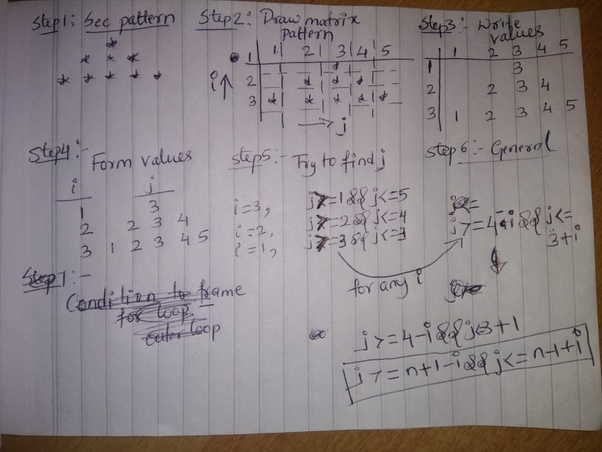 Step1: See pattern
*
* * *
* * * * *
Step2: Draw matrix
pattern
1 2 3 4 5
1 *
2 * * *
3 * * * * *
i↑
→ j
Step3: Write
values
1 2 3 4 5
1 3
2 2 3 4
3 1 2 3 4 5
Step4:-
Form values
i j
1 3
2 2 3 4
3 1 2 3 4 5
Step5:-
Try to find j
i=3, j>=1&&j<=5
i=2, j>=2&&j<=4
i=1, j>=3&&j<=3
for any i
Step6:- General
j<=
j>=4-i&&j<=
3+i
Step7:-
Condition to frame
for loop
outer loop
j>=4-i&&j<3+1
j>=n+1-i&&j<=n-1+i